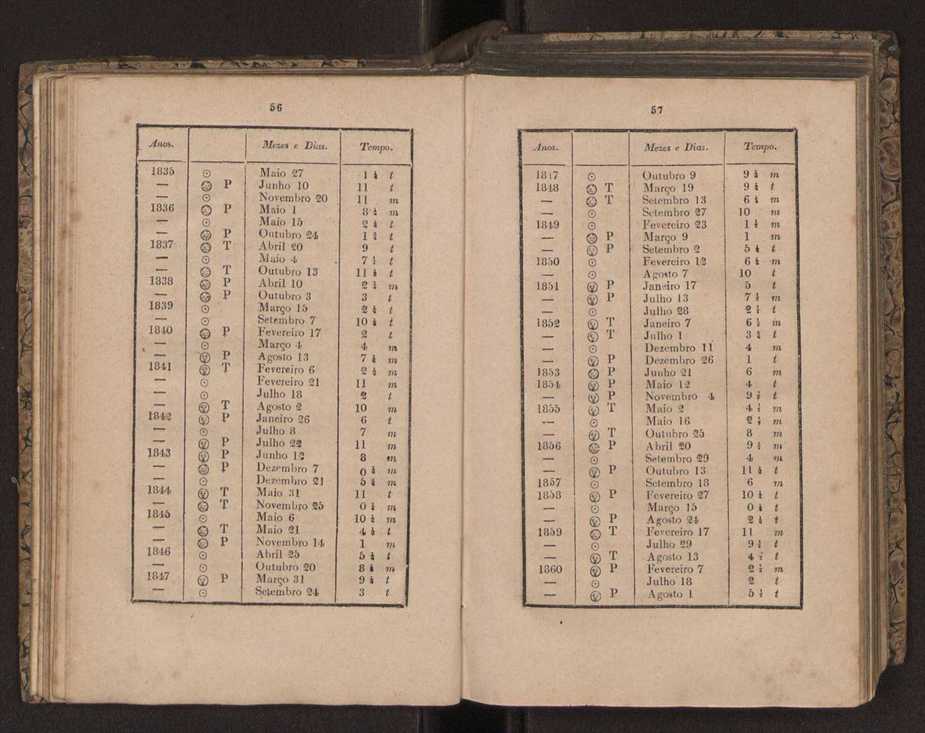 56
Anos. Mezes e Dias. Tempo.
1835 ☉ Maio 27 1 ½ t
— P Junho 10 11 t
— ☉ Novembro 20 11 m
1836 P Maio 1 8 ½ m
— ☉ Maio 15 2 ½ t
— P Outubro 24 1 t
1837 T Abril 20 9 t
— ☉ Maio 4 7 ½ t
— T Outubro 13 11 ½ t
1838 P Abril 10 2 ½ m
— P Outubro 3 3 t
1839 ☉ Março 15 2 ½ t
— ☉ Setembro 7 10 ½ t
1840 P Fevereiro 17 2 t
— ☉ Março 4 4 m
— P Agosto 13 7 ½ m
1841 T Fevereiro 6 2 ½ m
— ☉ Fevereiro 21 11 m
— ☉ Julho 18 2 t
— T Agosto 2 10 m
1842 P Janeiro 26 6 t
— ☉ Julho 8 7 m
— P Julho 22 11 m
1843 P Junho 12 8 m
— P Dezembro 7 0 ½ m
— ☉ Dezembro 21 5 ½ m
1844 T Maio 31 11 t
— T Novembro 25 0 ½ m
1845 ☉ Maio 6 10 ½ m
— T Maio 21 4 ½ t
— P Novembro 14 1 m
1846 ☉ Abril 25 5 ½ t
— ☉ Outubro 20 8 ½ m
1847 P Março 31 9 ½ t
— ☉ Setembro 24 3 t
57
Anos. Mezes e Dias. Tempo.
1847 ☉ Outubro 9 9 ½ m
1848 T Março 19 9 ½ t
— T Setembro 13 6 ½ m
— ☉ Setembro 27 10 m
1849 ☉ Fevereiro 23 1 ½ m
— P Março 9 1 m
— P Setembro 2 5 ½ t
1850 ☉ Fevereiro 12 6 ½ m
— ☉ Agosto 7 10 t
1851 P Janeiro 17 5 t
— P Julho 13 7 ½ m
— ☉ Julho 28 2 ½ t
1852 T Janeiro 7 6 ½ m
— T Julho 1 3 t
— ☉ Dezembro 11 4 m
— P Dezembro 26 1 t
1853 P Junho 21 6 m
1854 P Maio 12 4 t
— P Novembro 4 9 ½ t
1855 T Maio 2 4 ½ m
— ☉ Maio 16 2 ½ m
— T Outubro 25 8 m
1856 P Abril 20 9 ½ m
— ☉ Setembro 29 4 m
— P Outubro 13 11 ½ t
1857 ☉ Setembro 18 6 m
1858 P Fevereiro 27 10 ½ t
— ☉ Março 15 0 ½ t
— P Agosto 24 2 ½ t
1859 T Fevereiro 17 11 m
— ☉ Julho 29 9 ½ t
— T Agosto 13 4 ½ t
1860 P Fevereiro 7 2 ½ m
— ☉ Julho 18 2 t
— P Agosto 1 5 ½ t